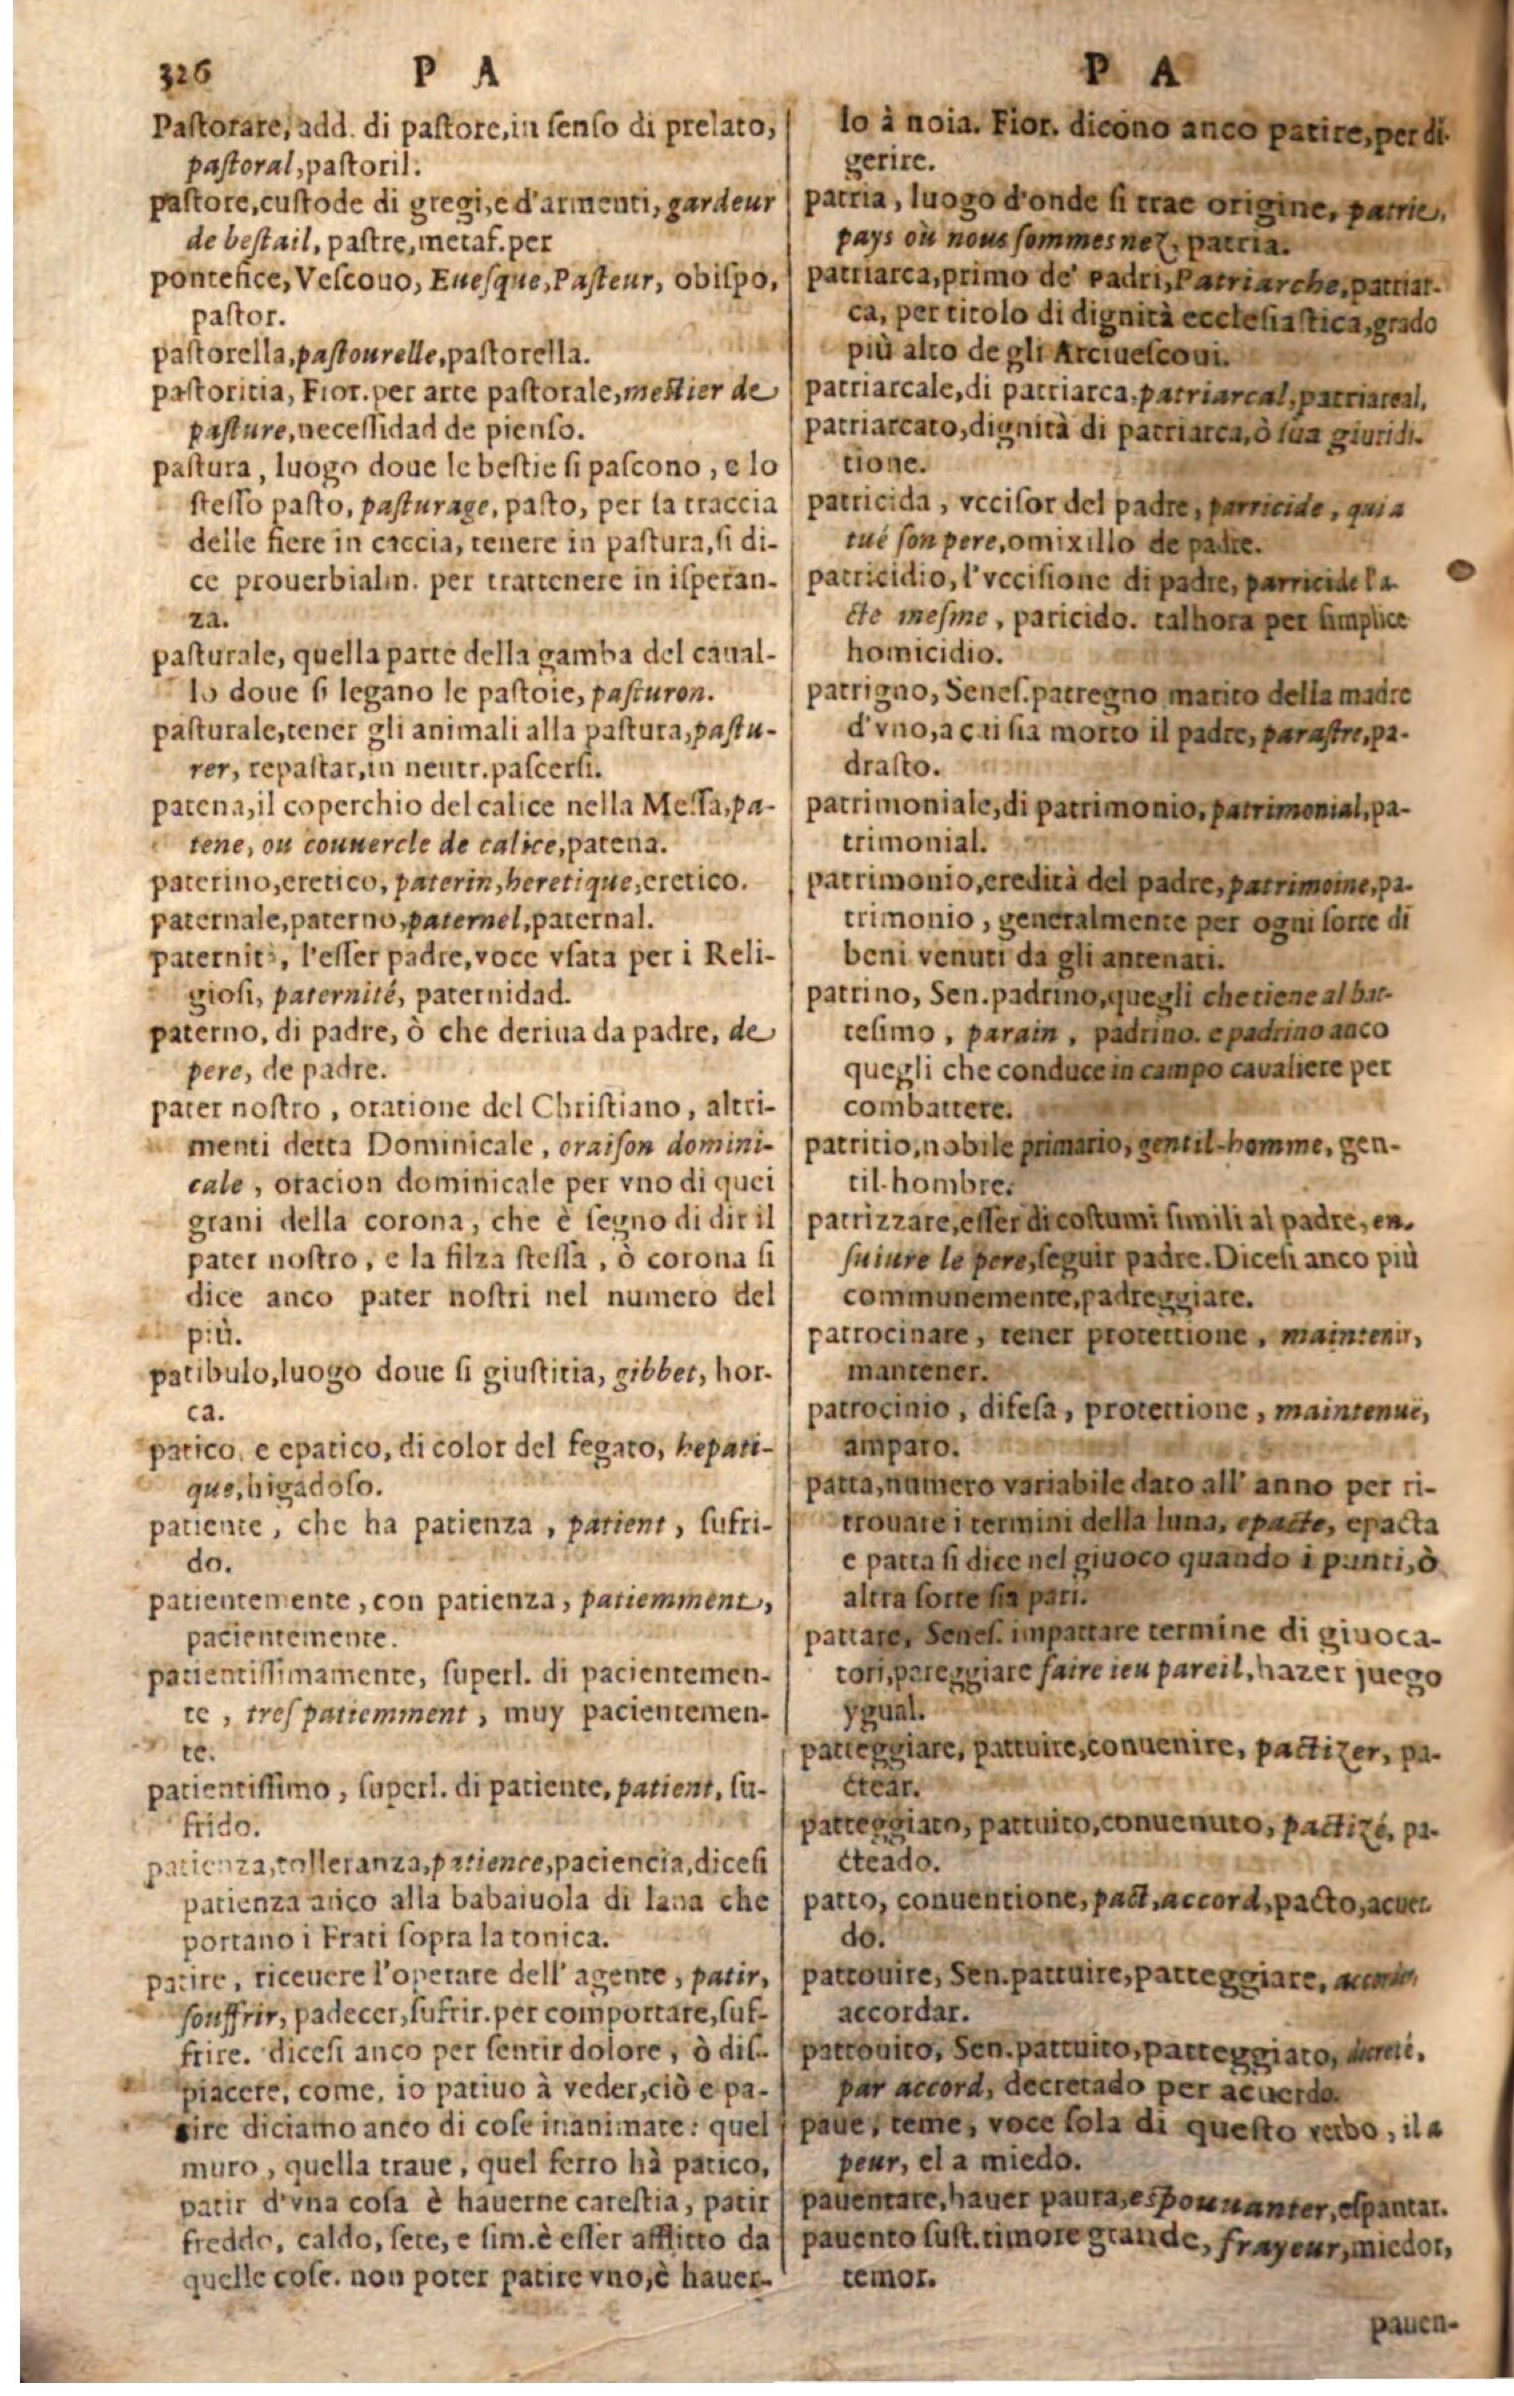 326 P A
Pastorare, add. di pastore, in senso di prelato,
pastoral, pastoril.
pastore, custode di gregi, e d'armenti, gardeur
de bestail, pastre, metaf. per
pontefice, Vescouo, Euesque, Pasteur, obispo,
pastor.
pastorella, pastourelle, pastorella.
pastoritia, Fior. per arte pastorale, mestier de
pasture, necessidad de pienso.
pastura, luogo doue le bestie si pascono, e lo
stesso pasto, pasturage, pasto, per la traccia
delle fiere in caccia, tenere in pastura, si di-
ce prouerbialm. per trattenere in isperan-
za.
pasturale, quella parte della gamba del caual-
lo doue si legano le pastoie, pasturon.
pasturale, tener gli animali alla pastura, pastu-
rer, repastar, in neutr. pascersi.
patena, il coperchio del calice nella Messa, pa-
tene, ou couuercle de calice, patena.
paterino, eretico, paterin, heretique, eretico.
paternale, paterno, paternel, paternal.
paternità, l'esser padre, voce vsata per i Reli-
giosi, paternité, paternidad.
paterno, di padre, ò che deriua da padre, de
pere, de padre.
pater nostro, oratione del Christiano, altri-
menti detta Dominicale, oraison domini-
cale, oracion dominicale per vno di quei
grani della corona, che è segno di dir il
pater nostro, e la filza stessa, ò corona si
dice anco pater nostri nel numero del
più.
patibulo, luogo doue si giustitia, gibbet, hor-
ca.
patico, e epatico, di color del fegato, hepati-
que, higadoso.
patiente, che ha patienza, patient, sufri-
do.
patientemente, con patienza, patiemment,
pacientemente.
patientissimamente, superl. di pacientemen-
te, tres patiemment, muy pacientemen-
te.
patientissimo, superl. di patiente, patient, su-
frido.
patienza, tolleranza, patience, paciencia, dicesi
patienza anco alla babaiuola di lana che
portano i Frati sopra la tonica.
patire, riceuere l'operare dell' agente, patir,
souffrir, padecer, sufrir. per comportare, suf-
frire. dicesi anco per sentir dolore, ò dis-
piacere, come, io patiuo à veder, ciò e pa-
tire diciamo anco di cose inanimate: quel
muro, quella traue, quel ferro hà patico,
patir d'vna cosa è hauerne carestia, patir
freddo, caldo, sete, e sim. è esser afflitto da
quelle cose. non poter patire vno, è hauer-
P A
lo à noia. Fior. dicono anco patire, per di-
gerire.
patria, luogo d'onde si trae origine, patrie,
pays où nous sommes nez, patria.
patriarca, primo de' Padri, Patriarche, patriar-
ca, per titolo di dignità ecclesiastica, grado
più alto de gli Arciuescoui.
patriarcale, di patriarca, patriarcal, patriarcal,
patriarcato, dignità di patriarca, ò sua giuridi-
tione.
patricida, vccisor del padre, parricide, qui a
tué son pere, omixillo de padre.
patricidio, l'vccisione di padre, parricide l'a-
cte mesme, paricido. talhora per simplice
homicidio.
patrigno, Senes. patregno marito della madre
d'vno, a cui sia morto il padre, parastre, pa-
drasto.
patrimoniale, di patrimonio, patrimonial, pa-
trimonial.
patrimonio, eredità del padre, patrimoine, pa-
trimonio, generalmente per ogni sorte di
beni venuti da gli antenati.
patrino, Sen. padrino, quegli che tiene al bat-
tesimo, parain, padrino. e padrino anco
quegli che conduce in campo cavaliere per
combattere.
patritio, nobile primario, gentil-homme, gen-
til-hombre.
patrizzare, esser di costumi simili al padre, en-
suiure le pere, seguir padre. Dicesi anco più
communemente, padreggiare.
patrocinare, tener protettione, maintenir,
mantener.
patrocinio, difesa, protettione, maintenuë,
amparo.
patta, numero variabile dato all' anno per ri-
trouare i termini della luna, epacte, epacta
e patta si dice nel giuoco quando i punti, ò
altra sorte sia pari.
pattare, Senes. impattare termine di giuoca-
tori, pareggiare faire ieu pareil, hazer juego
ygual.
patteggiare, pattuire, conuenire, pactizer, pa-
ctear.
patteggiato, pattuito, conuenuto, pactizé, pa-
cteado.
patto, conuentione, pact, accord, pacto, acuer-
do.
pattouire, Sen. pattuire, patteggiare,
accordar.
pattouito, Sen. pattuito, patteggiato,
par accord, decretado per acuerdo.
paue, teme, voce sola di questo verbo, il a
peur, el a miedo.
pauentare, hauer paura, espouuanter, espantar.
pauento sust. timore grande, frayeur, miedor,
temor.
pauen-